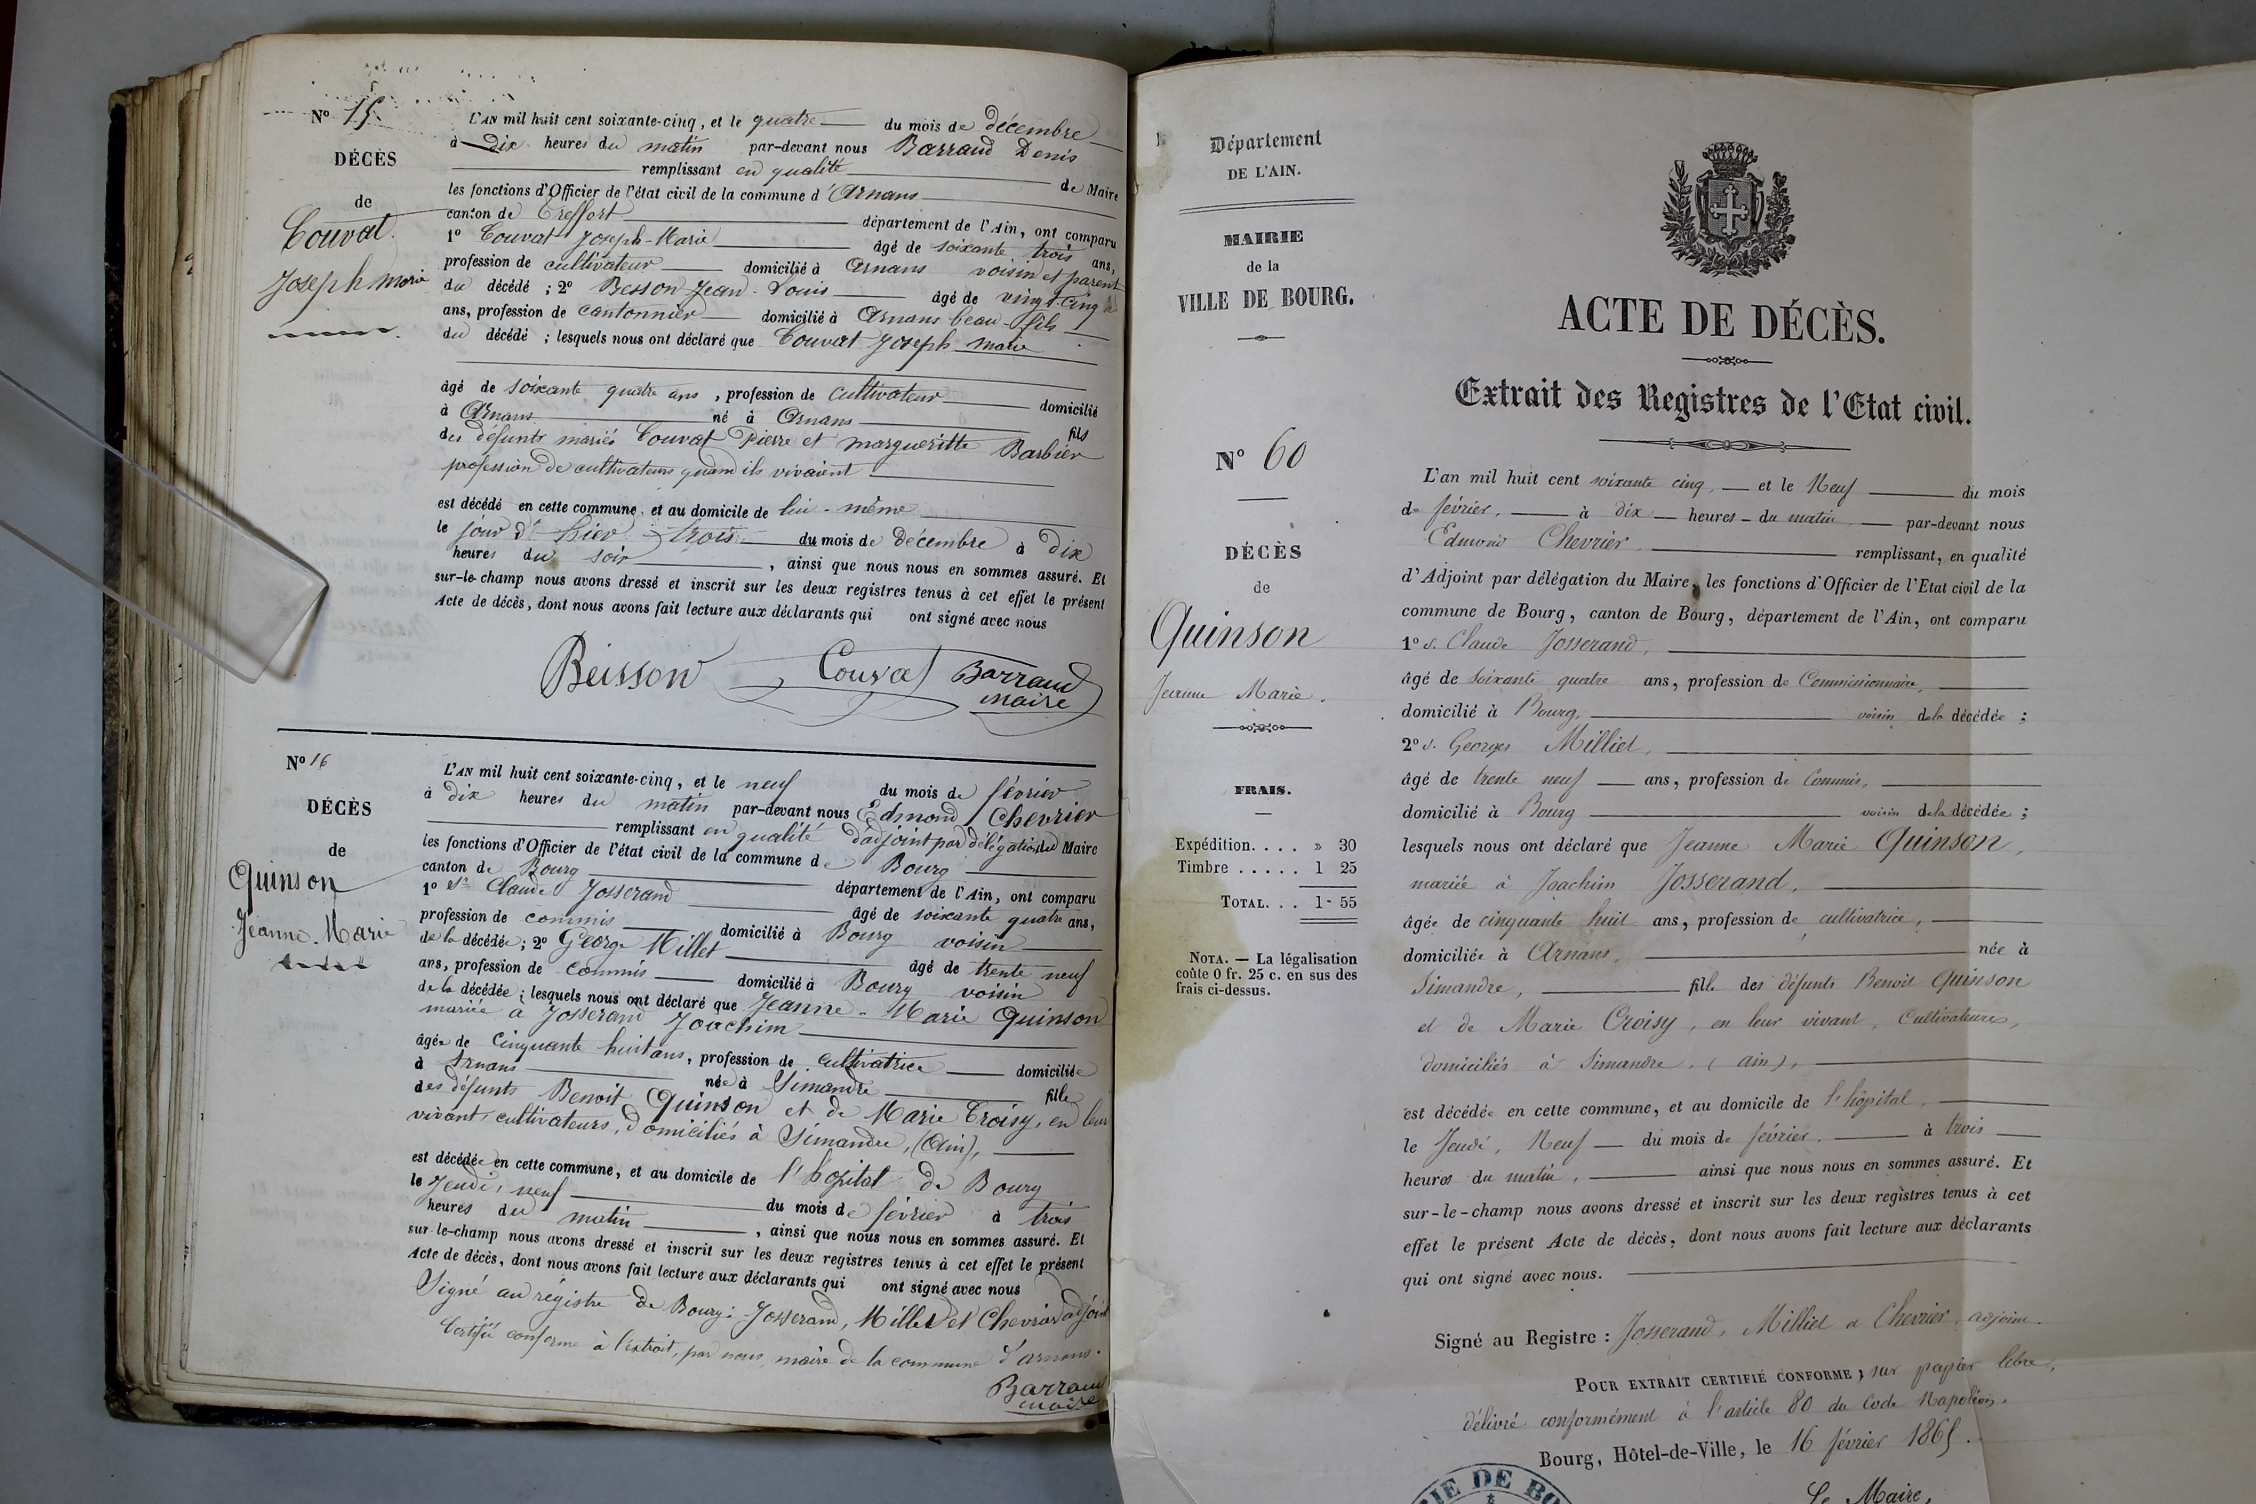 N° 15
DÉCÈS
de
Couvat
Joseph marie
L'AN mil huit cent soixante-cinq, et le quatre du mois de décembre
à Dix heures du matin par-devant nous Barraud Denis
remplissant en qualité de Maire
les fonctions d'Officier de l'état civil de la commune d'Arnans
canton de Treffort département de l'Ain, ont comparu
1° Couvat Joseph-Marie âgé de soixante trois ans,
profession de cultivateur domicilié à Arnans voisin et parent
du décédé ; 2° Besson Jean-Louis âgé de vingt-cinq
ans, profession de cantonnier domicilié à Arnans beau-fils
du décédé ; lesquels nous ont déclaré que Couvat Joseph marie
âgé de soixante quatre ans, profession de cultivateur domicilié
à Arnans né à Arnans fils
des défunts mariés Couvat Pierre et margueritte Barbier
profession de cultivateurs quand ils vivaient
est décédé en cette commune, et au domicile de lui-même
le jour d'hier trois du mois de Décembre à Dix
heures du soir, ainsi que nous nous en sommes assuré. Et
sur-le-champ nous avons dressé et inscrit sur les deux registres tenus à cet effet le présent
Acte de décès, dont nous avons fait lecture aux déclarants qui ont signé avec nous
Beisson Couvat Barraud
maire
N° 16
DÉCÈS
de
Quinson
Jeanne-Marie
L'AN mil huit cent soixante-cinq, et le neuf du mois de février
à dix heures du matin par-devant nous Edmond Chevrier
remplissant en qualité d'adjoint par délégation du Maire
les fonctions d'Officier de l'état civil de la commune de Bourg
canton de Bourg département de l'Ain, ont comparu
1° Sr Claude Josserand âgé de soixante quatre ans,
profession de commis domicilié à Bourg voisin
de la décédée ; 2° George Millet âgé de trente neuf
ans, profession de commis domicilié à Bourg voisin
de la décédée ; lesquels nous ont déclaré que Jeanne-Marie Quinson
mariée à Josserand Joachim
âgée de cinquante huit ans, profession de cultivatrice domiciliée
à Arnans née à Simandre fille
des défunts Benoit Quinson et de Marie Croisy, en leur
vivant cultivateurs, domiciliés à Simandre, (Ain),
est décédée en cette commune, et au domicile de l'hôpital de Bourg
le Jeudi, neuf du mois de février à trois
heures du matin, ainsi que nous nous en sommes assuré. Et
sur-le-champ nous avons dressé et inscrit sur les deux registres tenus à cet effet le présent
Acte de décès, dont nous avons fait lecture aux déclarants qui ont signé avec nous
Signé au régistre de Bourg : Josserand, Millet et Chevrier adjoint
Certifié conforme à l'extrait, par nous, maire de la commune d'arnans.
Barraud
maire
Département
DE L'AIN.
MAIRIE
de la
VILLE DE BOURG.
N° 60
DÉCÈS
de
Quinson
Jeanne Marie.
FRAIS.
Expédition. . . . » 30
Timbre . . . . . 1 25
TOTAL. . . 1-55
NOTA. — La légalisation
coûte 0 fr. 25 c. en sus des
frais ci-dessus.
ACTE DE DÉCÈS.
Extrait des Registres de l'Etat civil.
L'an mil huit cent soixante cinq, et le Neuf du mois
de février, à dix heures du matin par-devant nous
Edmond Chevrier, remplissant, en qualité
d'Adjoint par délégation du Maire, les fonctions d'Officier de l'Etat civil de la
commune de Bourg, canton de Bourg, département de l'Ain, ont comparu
1° s. Claude Josserand,
âgé de soixante quatre ans, profession de Commissionnaire,
domicilié à Bourg, voisin de la décédée ;
2° s. Georges Milliet,
âgé de trente neuf ans, profession de Commis,
domicilié à Bourg voisin de la décédée ;
lesquels nous ont déclaré que Jeanne Marie Quinson,
mariée à Joachim Josserand,
âgée de cinquante huit ans, profession de cultivatrice,
domiciliée à Arnans, née à
Simandre, fille des défunts Benoit Quinson
et de Marie Croisy, en leur vivant, Cultivateurs,
domiciliés à Simandre, (ain),
est décédée en cette commune, et au domicile de l'hôpital,
le Jeudi, Neuf du mois de février, à trois
heures du matin, ainsi que nous nous en sommes assuré. Et
sur-le-champ nous avons dressé et inscrit sur les deux registres tenus à cet
effet le présent Acte de décès, dont nous avons fait lecture aux déclarants
qui ont signé avec nous.
Signé au Registre : Josserand, Milliet et Chevrier, adjoint.
POUR EXTRAIT CERTIFIÉ CONFORME, sur papier libre,
délivré conformément à l'article 80 du Code Napoléon.
Bourg, Hôtel-de-Ville, le 16 février 1865.
Le Maire,
IE DE BO